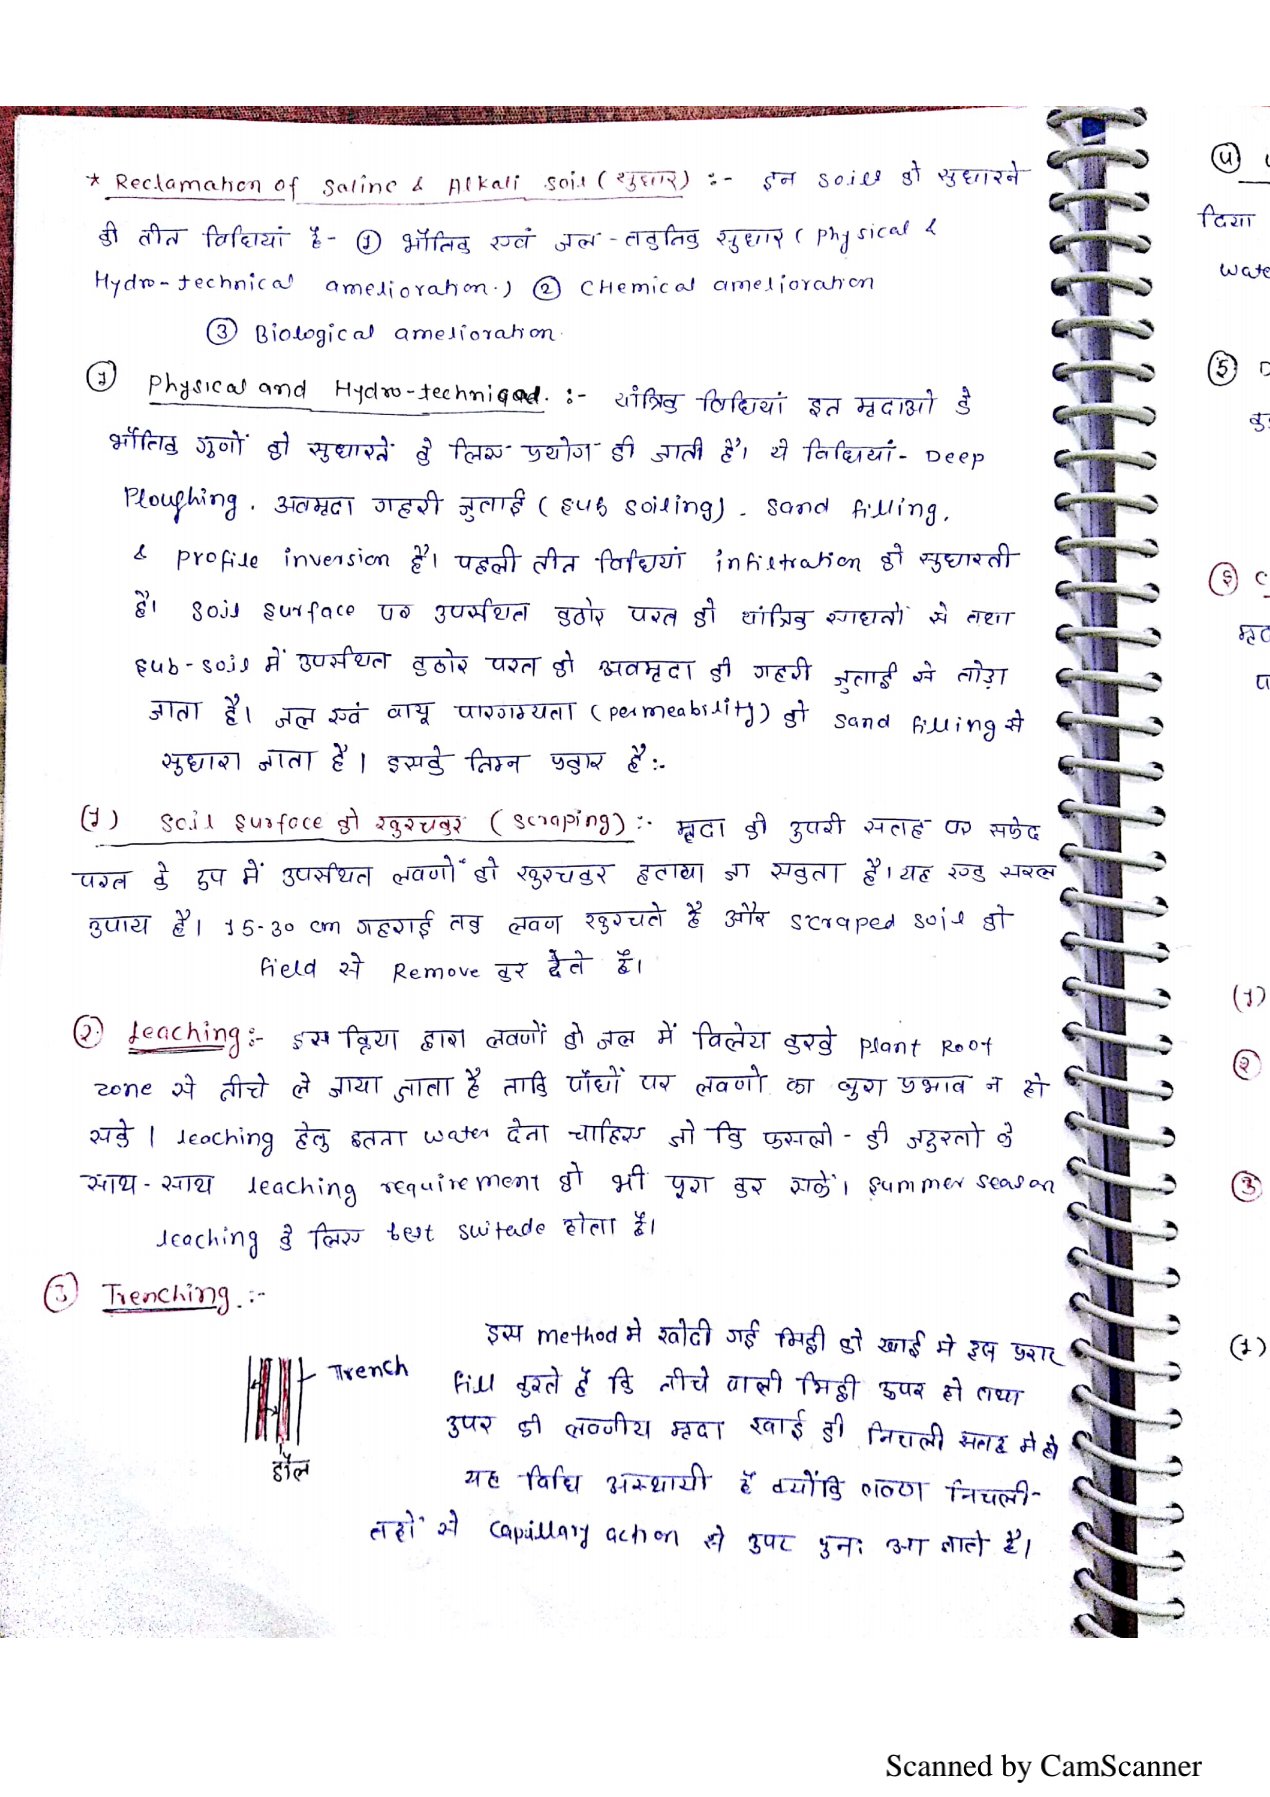 * Reclamation of Saline & Alkali Soil (सुधार) :- इन soils को सुधारने
की तीन विधियां है- ① भौतिक एवं जल-तकनिक सुधार (Physical &
Hydro-technical amelioration.) ② CHemical amelioration
③ Biological amelioration.
① Physical and Hydro-techniqed. :- यांत्रिक विधियां इन मृदाओ के
भौतिक गुणों को सुधारने के लिए प्रयोग की जाती है। ये विधियां- Deep
Ploughing, अवमृदा गहरी जुताई (sub soiling), Sand filling,
& Profile inversion है। पहली तीन विधियां infiltration को सुधारती
है। Soil surface पर उपस्थित कठोर परत को यांत्रिक साधनों से तथा
sub-soil में उपस्थित कठोर परत को अवमृदा की गहरी जुताई से तोड़ा
जाता है। जल एवं वायु पारगम्यता (permeability) को Sand filling से
सुधारा जाता है। इसके निम्न प्रकार है:-
(1) Soil surface को खुरचकर (Scraping) :- मृदा की उपरी सतह पर सफेद
परत के रूप में उपस्थित लवणों को खुरचकर हटाया जा सकता है। यह एक सरल
उपाय है। 15-30 cm गहराई तक लवण खुरचते है और scraped soil को
field से Remove कर देते हैं।
② leaching:- इस क्रिया द्वारा लवणों को जल में विलेय करके Plant Root
zone से नीचे ले जाया जाता है ताकि पौधों पर लवणो का बुरा प्रभाव न हो
सके। leaching हेतु इतना water देना चाहिए जो कि फसलो- की जरुरतो के
साथ-साथ leaching requirement को भी पूरा कर सके। summer season
leaching के लिए best suitable होता है।
③ Trenching. :-
इस method मे खोदी गई मिट्टी को खाई मे इस प्रकार
Trench
fill करते हैं कि नीचे वाली मिट्टी ऊपर हो तथा
उपर की लवणीय मृदा खाई की निचली सतह मे हो
डौल
यह विधि अस्थायी है क्योंकि लवण निचली-
तहों से capillary action से उपर पुनः आ जाते है।
④
दिया
wate
⑤ D
⑥ C
(1)
②
③
(1)
Scanned by CamScanner